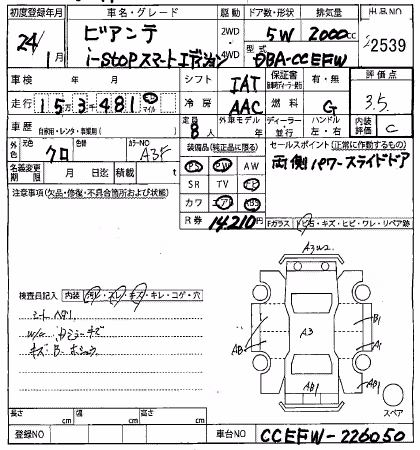 初度登録年月 車名・グレード 駆動 ドア数・形状 排気量 出品NO
24年 1月 ビアンテ 2WD 5W 2000cc 2539
i-STOP スマートエディション 4WD 型式 DBA-CCEFW
車検 年 月 シフト IAT 保証書 有・無 評価点
走行 153481 マイル 冷房 AAC 燃料 G 3.5
車歴 自家用・レンタ・事業用( ) 定員 8人 外車モデル 年 ディーラー・並行 ハンドル 左・右 内装評価 C
外色 元色 クロ 色替 カラーNO A3F 装備品(純正品に限る) セールスポイント(正常に作動するもの)
名義変更期限 月 日迄 積載 t PS PW AW 両側パワースライドドア
注意事項(欠品・修復・不具合箇所および状態) SR TV ナビ
カワ エアB ABS
R券 14210円 Fガラス 飛石・キズ・ヒビ・ワレ・リペア跡
A3 W2
検査員記入欄 内装 汚レ・スレ・キズ・キレ・コゲ・穴
シートヘタリ
キズ・B・ホシュウ
A3
B1
A1
AB
AB1
AB1
スペア
長さ cm 幅 cm 高さ cm
登録NO 車台NO CCEFW-226050